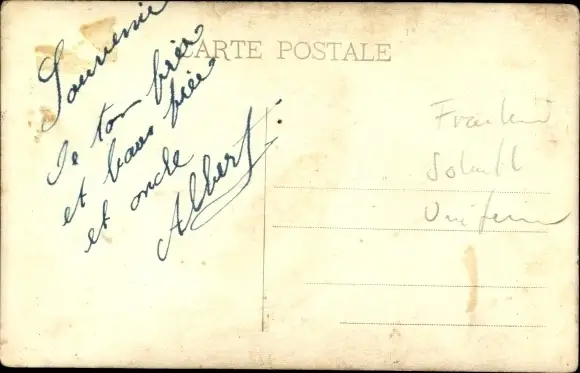 CARTE POSTALE
Souvenir
de ton frère
et beau frère
et oncle
Albert
Uniform